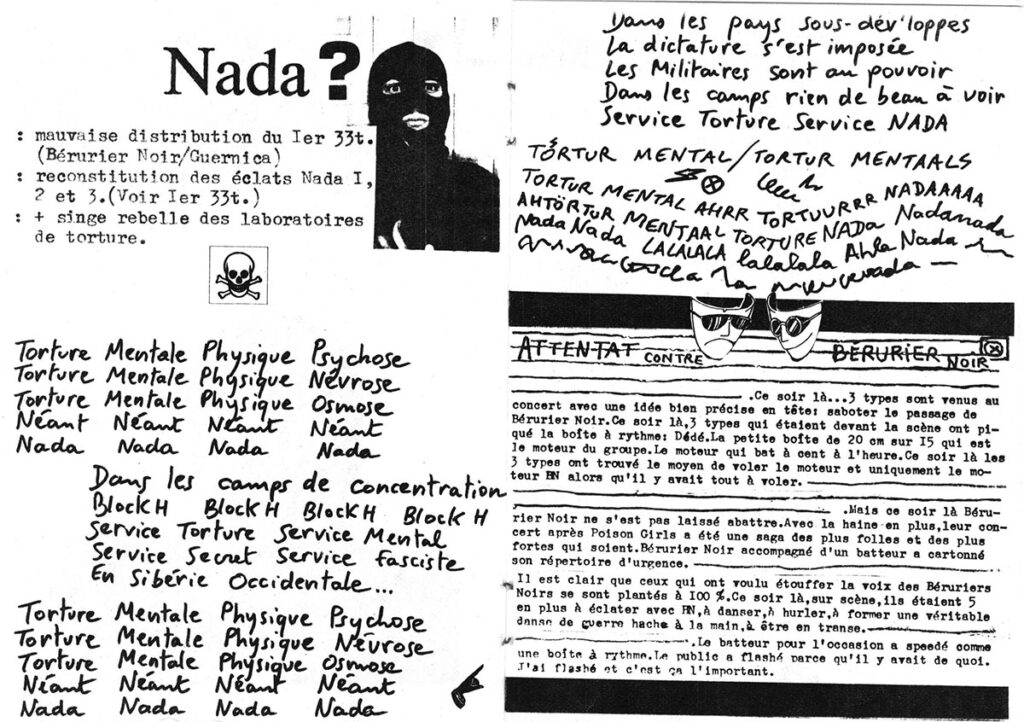 Nada?
: mauvaise distribution du Ier 33t.
(Bérurier Noir/Guernica)
: reconstitution des éclats Nada I,
2 et 3.(Voir Ier 33t.)
: + singe rebelle des laboratoires
de torture.
Torture Mentale Physique Psychose
Torture Mentale Physique Névrose
Torture Mentale Physique Osmose
Néant Néant Néant Néant
Nada Nada Nada Nada
Dans les camps de concentration
Block H Block H Block H Block H
Service Torture Service Mental
Service Secret Service fasciste
En Sibérie Occidentale...
Torture Mentale Physique Psychose
Torture Mentale Physique Névrose
Torture Mentale Physique Osmose
Néant Néant Néant Néant
Nada Nada Nada Nada
Dans les pays sous-dév'loppes
La dictature s'est imposée
Les Militaires sont au pouvoir
Dans les camps rien de beau à voir
Service Torture Service NADA
TORTUR MENTAL/TORTUR MENTAALS
TORTUR MENTAL AHRR TORTUURRR NADAAAAA
AHTÖRTUR MENTAAL TORTURE NADA Nadanada
Nada Nada LALALALA lalalala Ahla Nada
ATTENTAT CONTRE BÉRURIER NOIR
.Ce soir là...3 types sont venus au
concert avec une idée bien précise en tête: saboter le passage de
Bérurier Noir.Ce soir là,3 types qui étaient devant la scène ont pi-
qué la boîte à rythme: Dédé.La petite boîte de 20 cm sur I5 qui est
le moteur du groupe.Le moteur qui bat à cent à l'heure.Ce soir là les
3 types ont trouvé le moyen de voler le moteur et uniquement le mo-
teur BN alors qu'il y avait tout à voler.
.Mais ce soir là Béru-
rier Noir ne s'est pas laissé abattre.Avec la haine en plus,leur con-
cert après Poison Girls a été une saga des plus folles et des plus
fortes qui soient.Bérurier Noir accompagné d'un batteur a cartonné
son répertoire d'urgence.
Il est clair que ceux qui ont voulu étouffer la voix des Béruriers
Noirs se sont plantés à I00 %.Ce soir là,sur scène,ils étaient 5
en plus à éclater avec BN,à danser,à hurler,à former une véritable
danse de guerre hache à la main,à être en transe.
.Le batteur pour l'occasion a speedé comme
une boîte à rythme.Le public a flashé parce qu'il y avait de quoi.
J'ai flashé et c'est ça l'important.